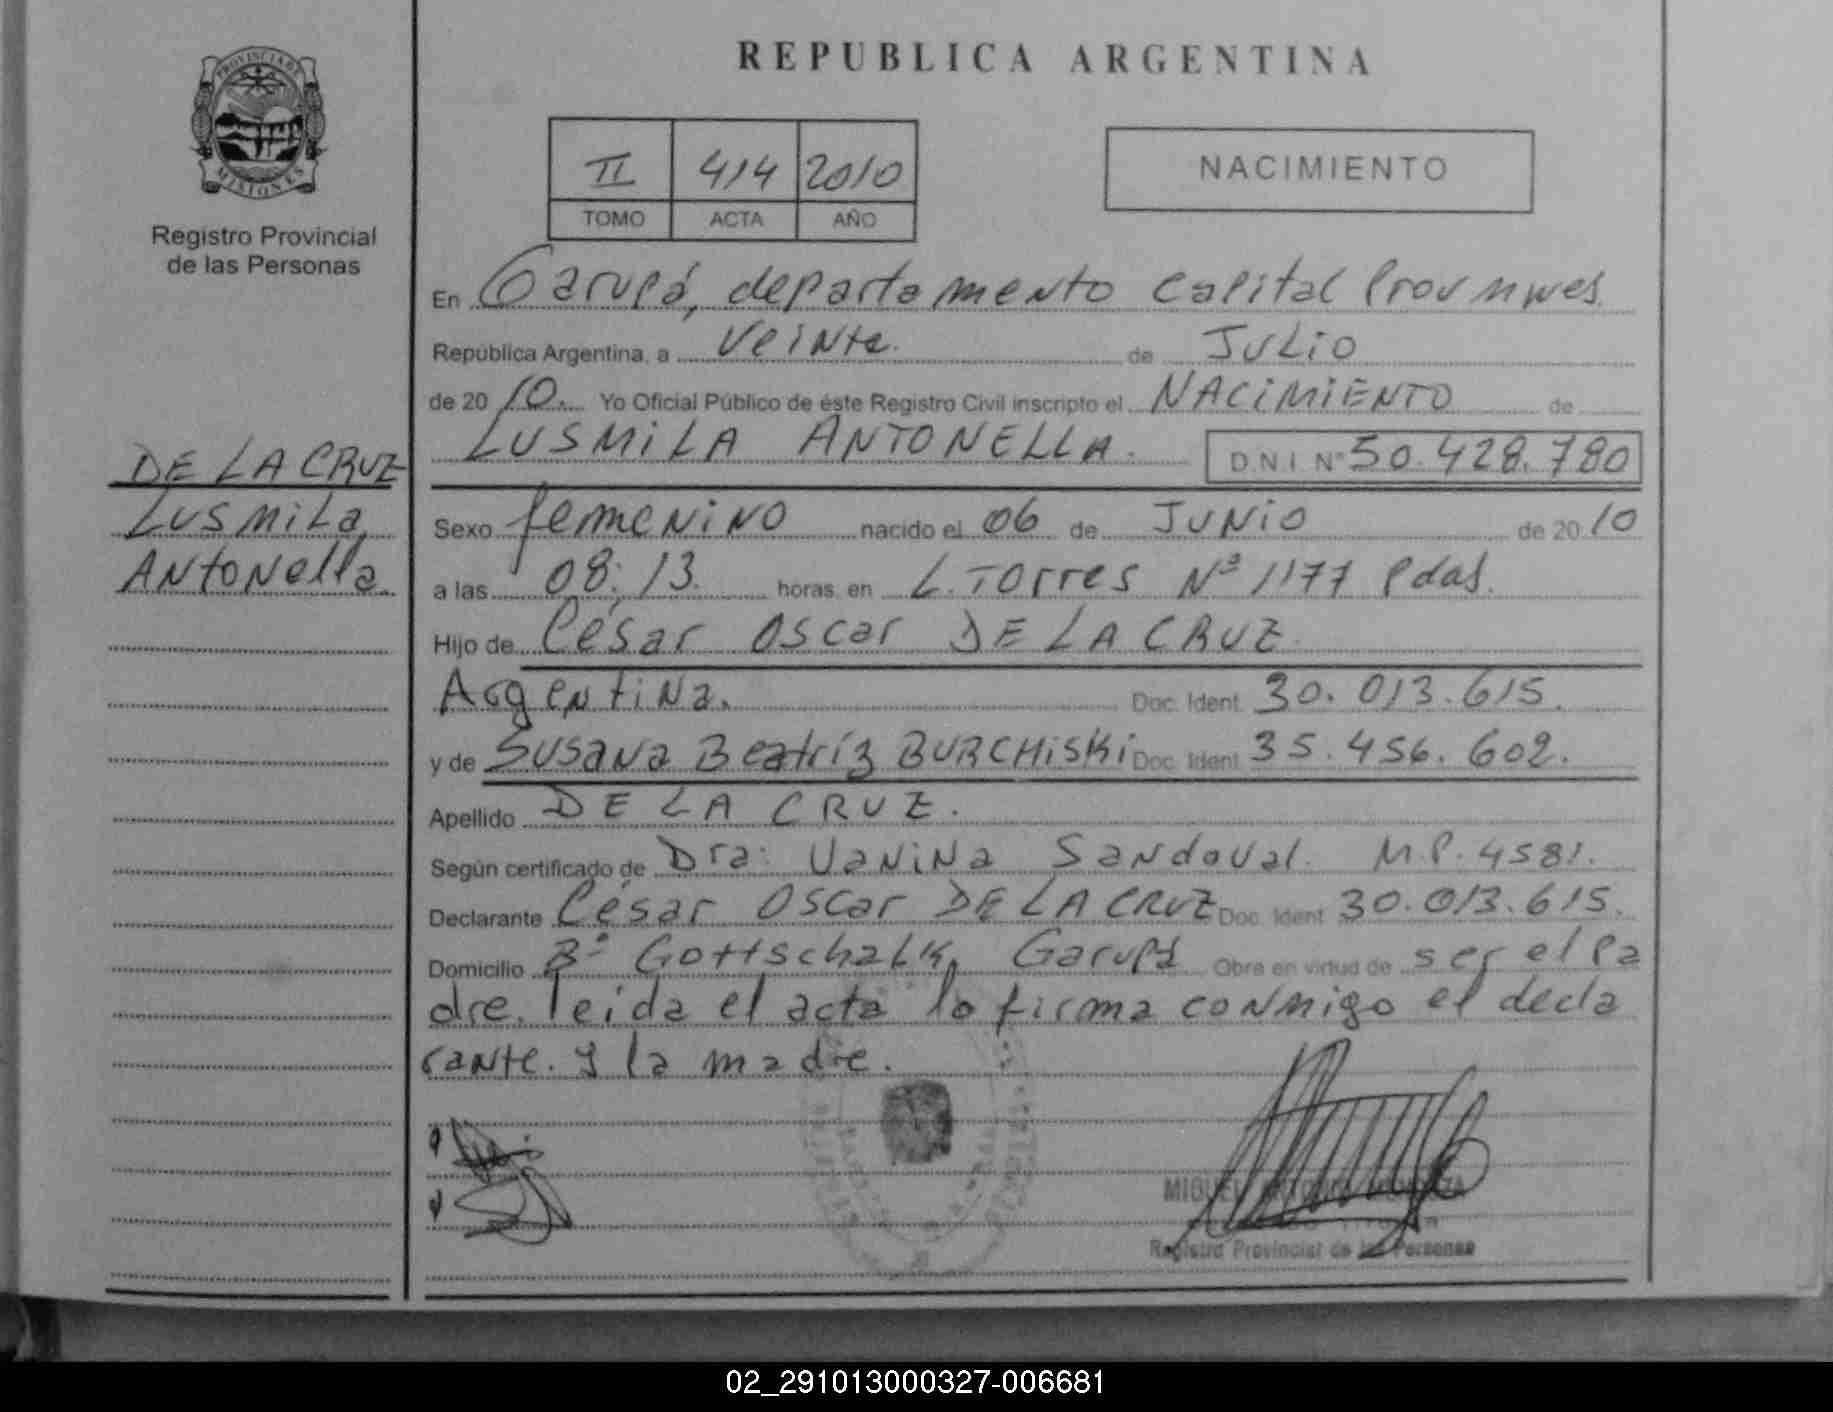 REPUBLICA ARGENTINA
PROVINCIA DE
MISIONES
Registro Provincial
de las Personas
II 414 2010
TOMO ACTA AÑO
NACIMIENTO
En Garupá, departamento Capital Prov
República Argentina, a Veinte. de JULIO
de 20 10. Yo Oficial Público de éste Registro Civil inscripto el NACIMIENTO de
LUSMILA ANTONELLA. D.N.I. Nº 50.428.780
DE LA CRUZ
LUSMILA
ANTONella.
Sexo femenino nacido el 06 de JUNIO de 20 10
a las 08:13. horas, en L. Torres Nº 1177 Pdas.
Hijo de César Oscar DE LA CRUZ
Argentina. Doc. Ident. 30.013.615.
y de Susana Beatríz BURCHISKI Doc. Ident. 35.456.602.
Apellido DE LA CRUZ.
Según certificado de Dra: Vanina Sandoval. M.P. 4581.
Declarante César Oscar DE LA CRUZ Doc. Ident. 30.013.615.
Domicilio Bº Gottschalk, Garupá Obra en virtud de ser el pa
dre. leida el acta la firma conmigo el decla
rante. y la madre.
MIGUEL ANTONIO
Registro Provincial de las Personas
02_291013000327-006681